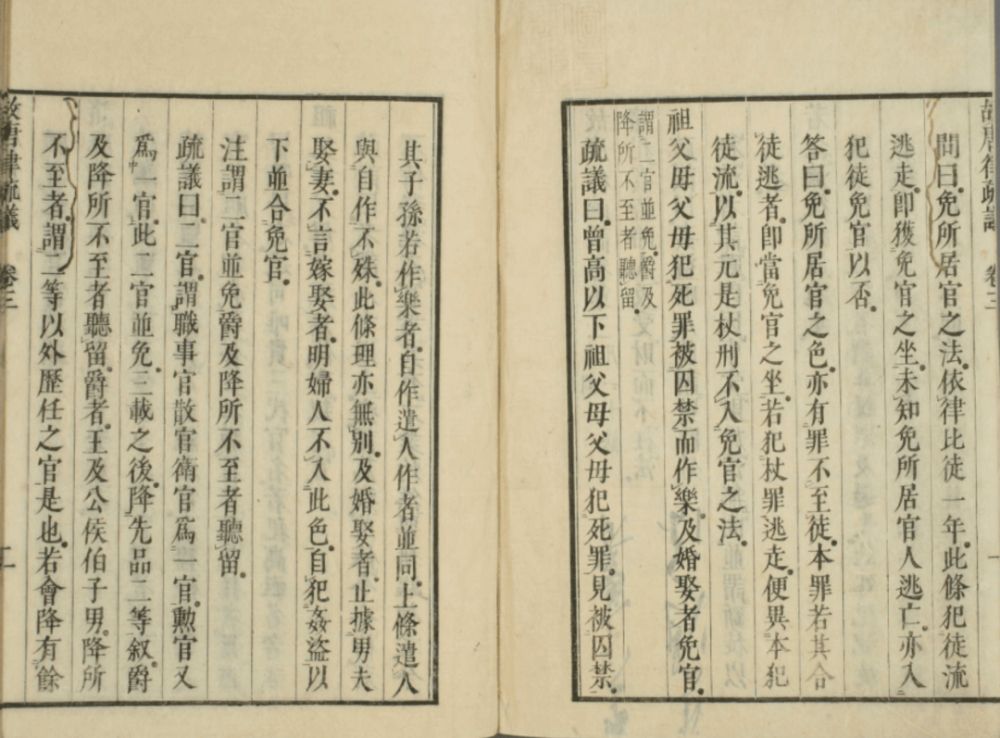 故唐律疏議 卷三 一
問曰免所居官之法依律比徒一年此條犯徒流
逃走卽獲免官之坐未知免所居官人逃亡亦入
犯徒免官以否
答曰免所居官之色亦有罪不至徒本罪若其合
徒逃者卽當免官之坐若犯杖罪逃走便異本犯
徒流以其元是杖刑不入免官之法
祖父母父母犯死罪被囚禁而作樂及婚娶者免官
謂二官並免爵及
降所不至者聽留
疏議曰曾高以下祖父母父母犯死罪見被囚禁
其子孫若作樂者自作遣人作者並同上條遣人
與自作不殊此條理亦無別及婚娶者止據男夫
娶妻不言嫁娶者明婦人不入此色自犯姦盜以
下並合免官
注謂二官並免爵及降所不至者聽留
疏議曰二官謂職事官散官衛官爲一官勲官又
爲一官此二官並免三載之後降先品二等叙爵
及降所不至者聽留爵者王及公侯伯子男降所
不至者謂二等以外歷任之官是也若會降有餘
故唐律疏議 卷三